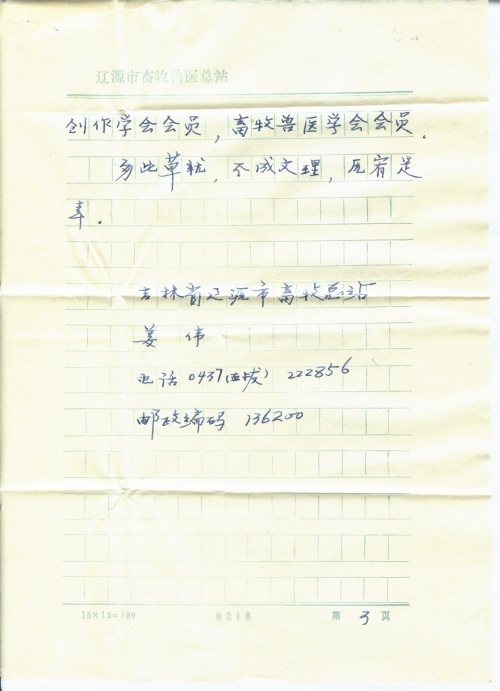 辽源市畜牧兽医总站
创作学会会员，畜牧兽医学会会员．
匆此草就，不成文理，见宥是
幸．
吉林省辽源市畜牧总站
姜伟
电话 0437（直拨）222856
邮政编码 136200
15×12=180 6218 第 3 页